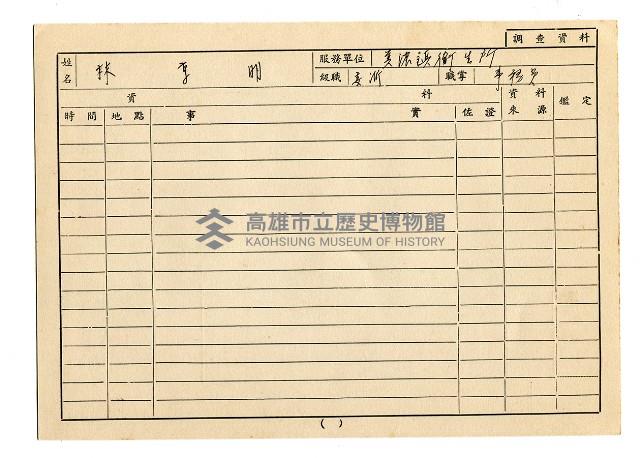 調查資料
姓名 林 享 明 服務單位 美濃鎮衛生所
級職 委派 職掌 事務員
資 料 資料來源 鑑定
時間 地點 事 實 佐證
高雄市立歷史博物館
KAOHSIUNG MUSEUM OF HISTORY
( )